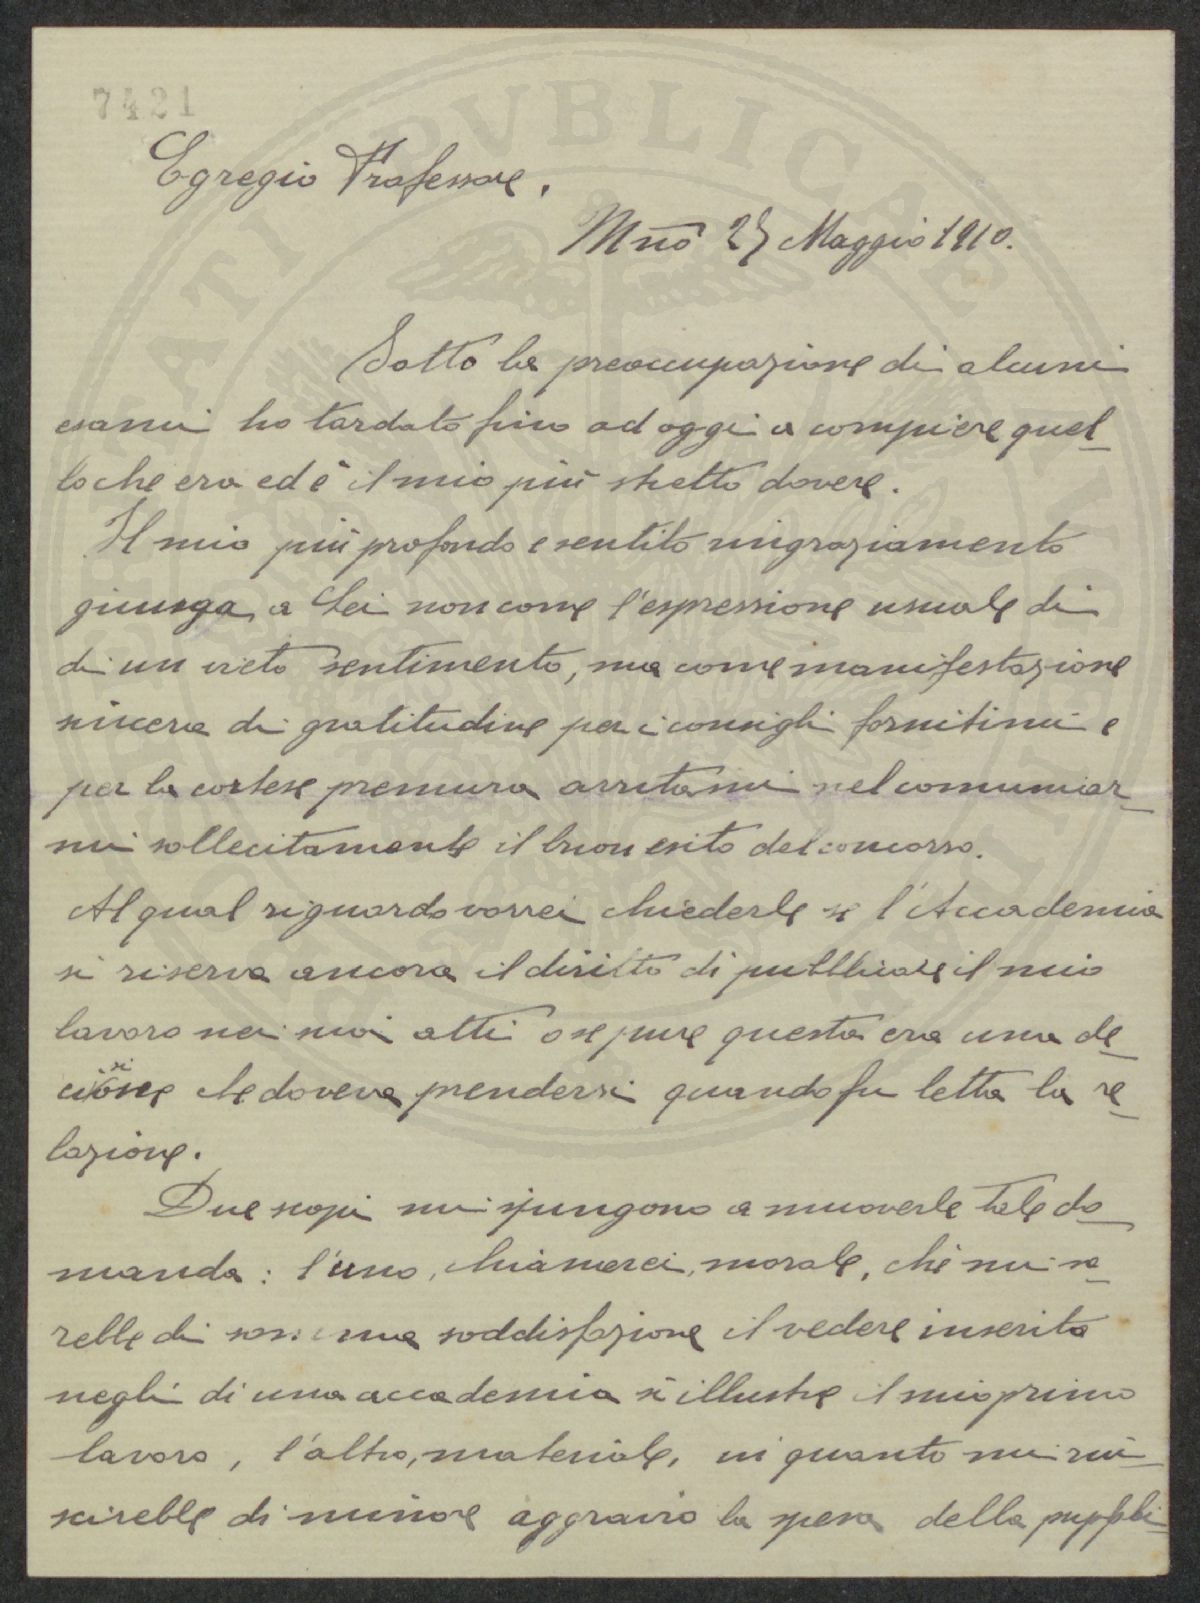 7421
Egregio Professore,
Mno 25 Maggio 1910.
Sotto la preoccupazione di alcuni
esami ho tardato fino ad oggi a compiere quel_
lo che era ed è il mio più stretto dovere.
Il mio più profondo e sentito ringraziamento
giunga a Lei non come l'espressione usuale di
di un vieto sentimento, ma come manifestazione
sincera di gratitudine per i consigli fornitimi e
per la cortese premura avutami nel comunicar_
mi sollecitamente il buon esito del concorso.
Al qual riguardo vorrei chiederle se l'Accademia
si riserva ancora il diritto di pubblicare il mio
lavoro nei suoi atti o se pure questa era una de_
cisione che doveva prendersi quando fu letta la re_
lazione.
Due scopi mi spungono a muoverle tale do_
manda: l'uno, chiamerei, morale, chè mi sa_
rebbe di somma soddisfazione il vedere inserito
negli di una accademia sì illustre il mio primo
lavoro, l'altro, materiale, in quanto mi riu_
scirebbe di minore aggravio la spesa della pubbli_
PVBLICAE